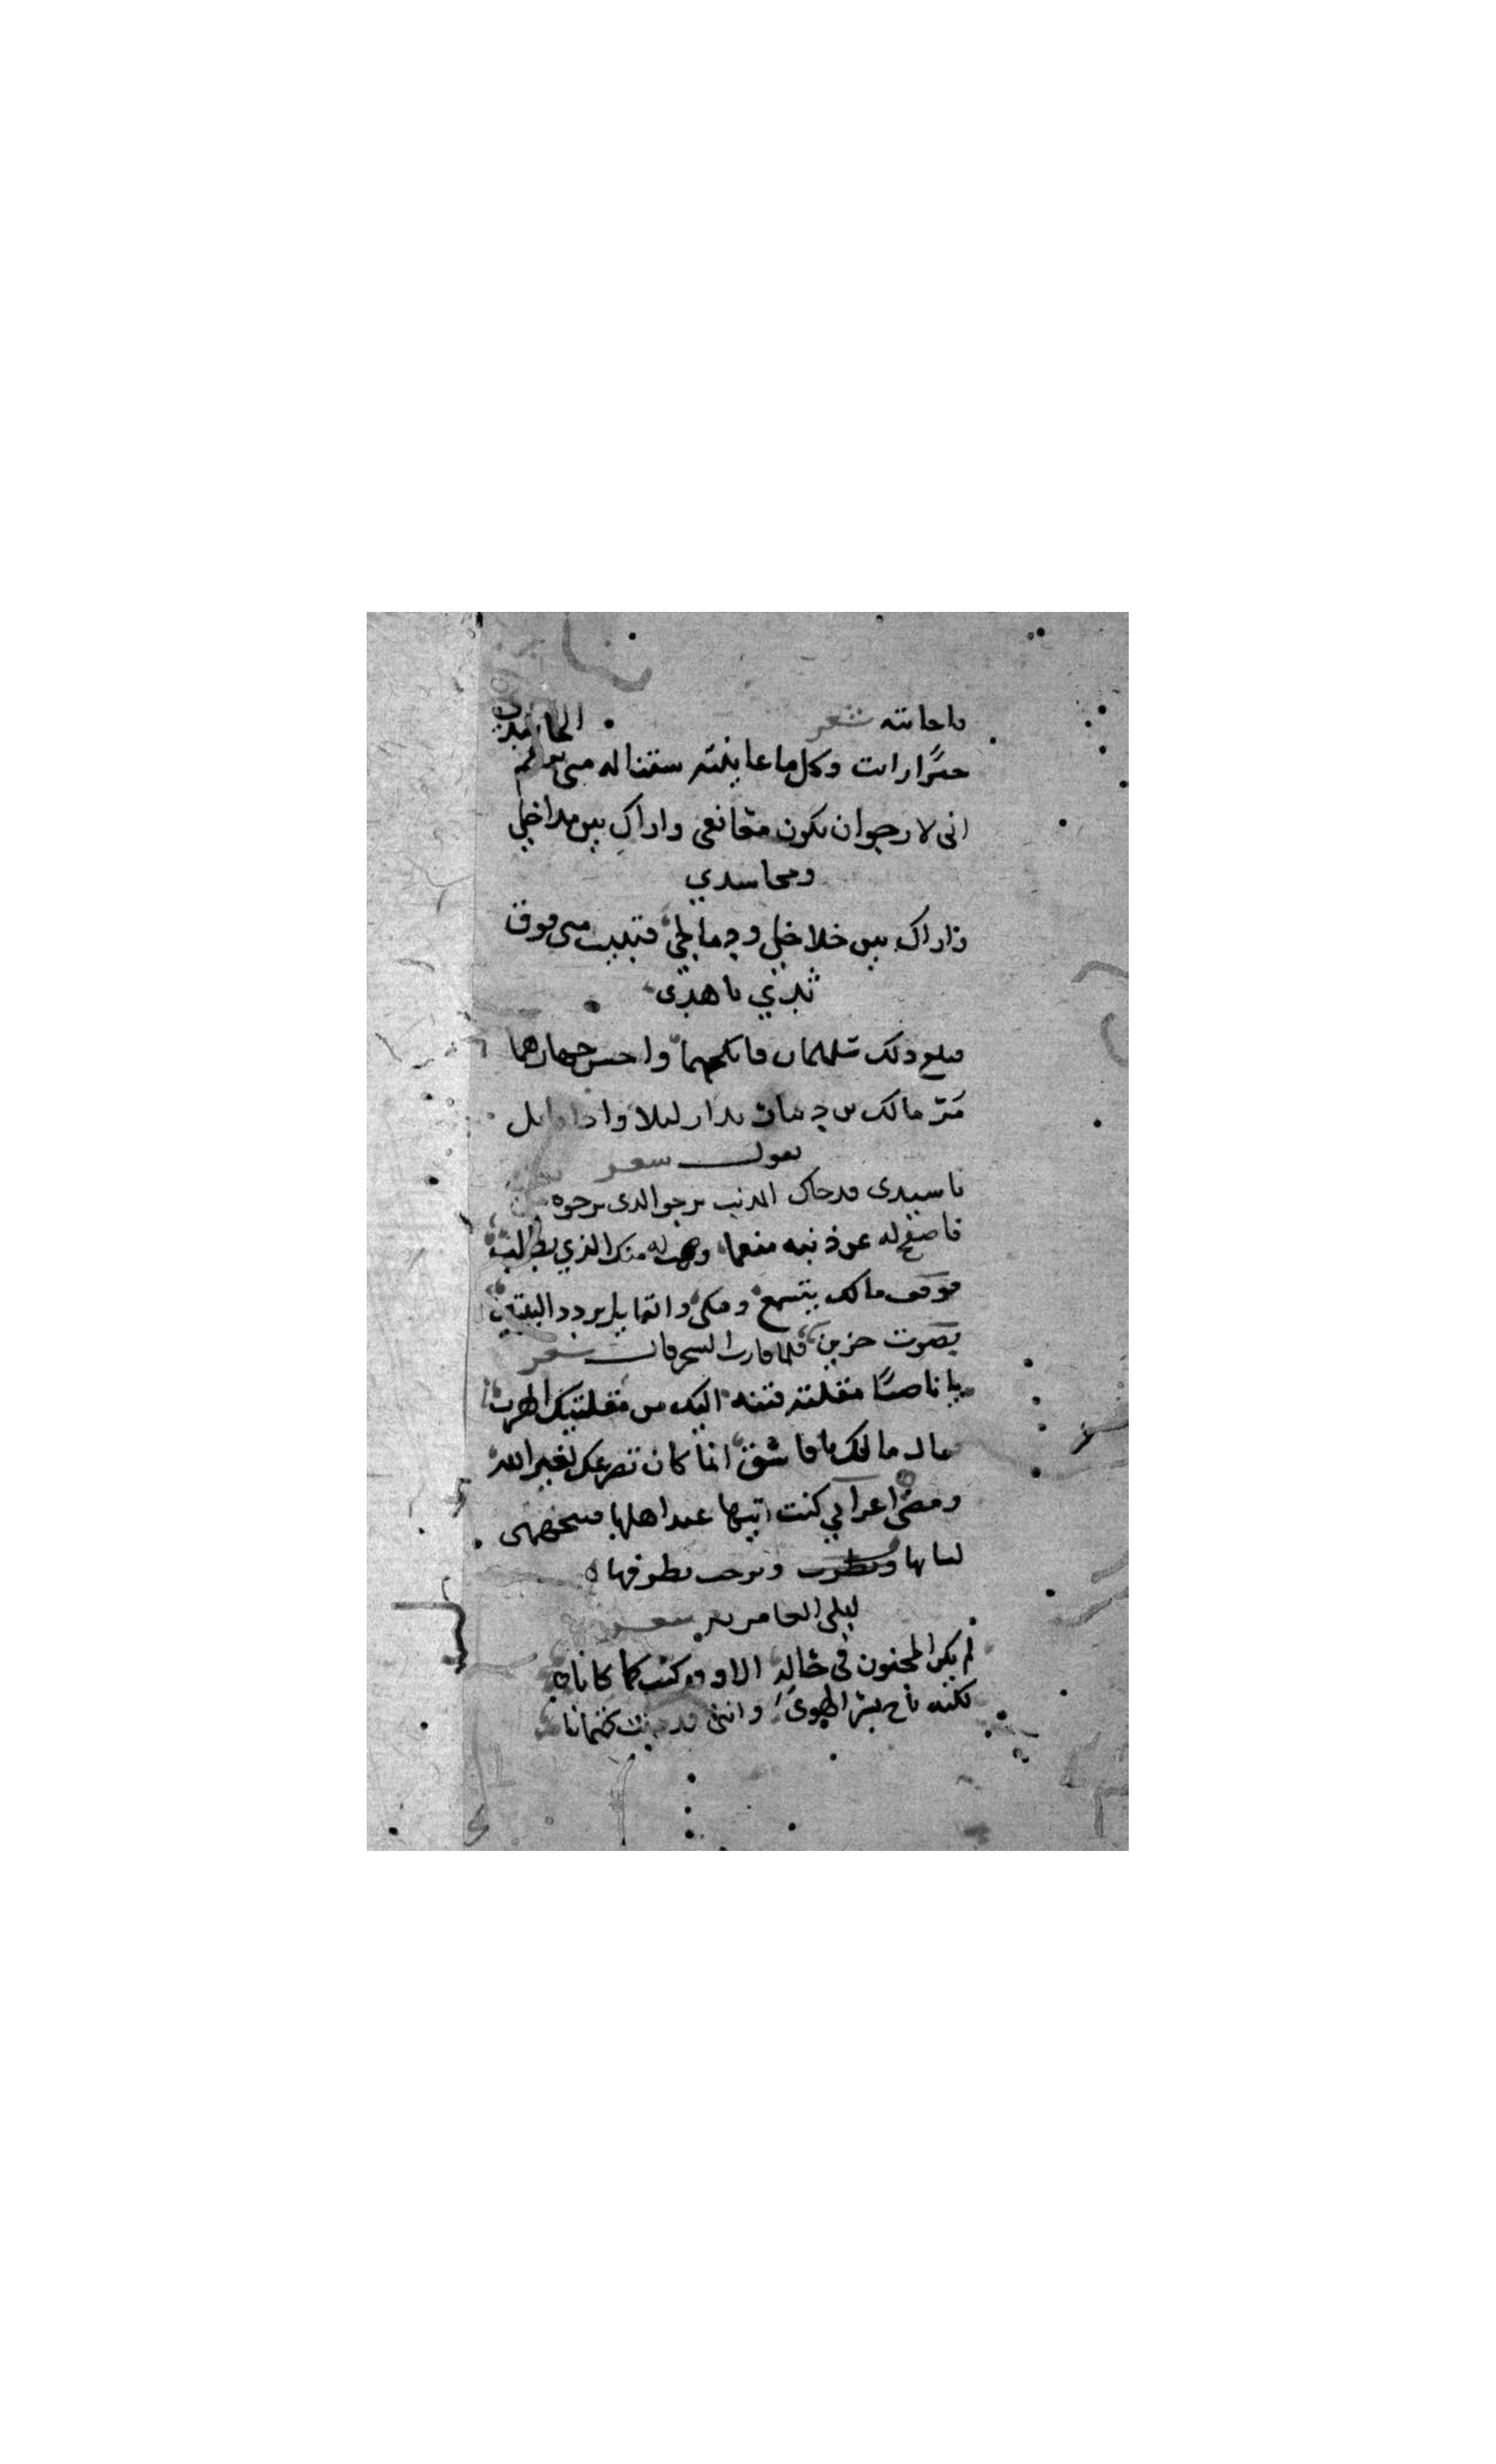 فاجابته شعر
خيرًا رايت وكل ما عاينته ستناله مني برغم الحاسد
اني لارجو ان تكون معانقي واراك بين مداخلي
ومجاسدي
واراك بين خلاخلي ودمالجي فتبيت مني فوق
ثدي ناهدي
فبلغ ذلك سليمان فانكحهما واحسن جهازهما
مَرّ مالك بن دينار بدار ليلا واذا قايل
يقول شعر
يا سيدي قد جاك المذنب يرجو الذي يرجوه
فاصفح له عن ذنبه منعما وهب له منك الذي يطلب
فوقف مالك يتسمع ويبكي والقايل يردد البيتين
بصوت حزين فلما قارب السحر قال شعر
يا ناصبًا مقلته فتنه اليك من مقلتيك الهرب
فقال مالك يا فاسق انما كان تضرعك لغير الله
ومضى اعرابي كنت اتيها عند اهلها
لسانها وترحب بطرفها
ليلى العامريه شعر
لم يكن المجنون في حالة الا وقد كنت كما كانا
لكنه باح بسر الهوى وانني قد ذبت كتمانا